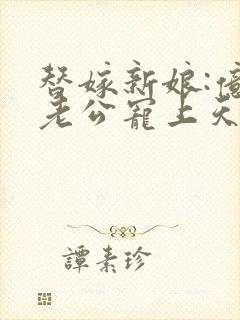 替嫁新娘:億
老公寵上天
譚素珍